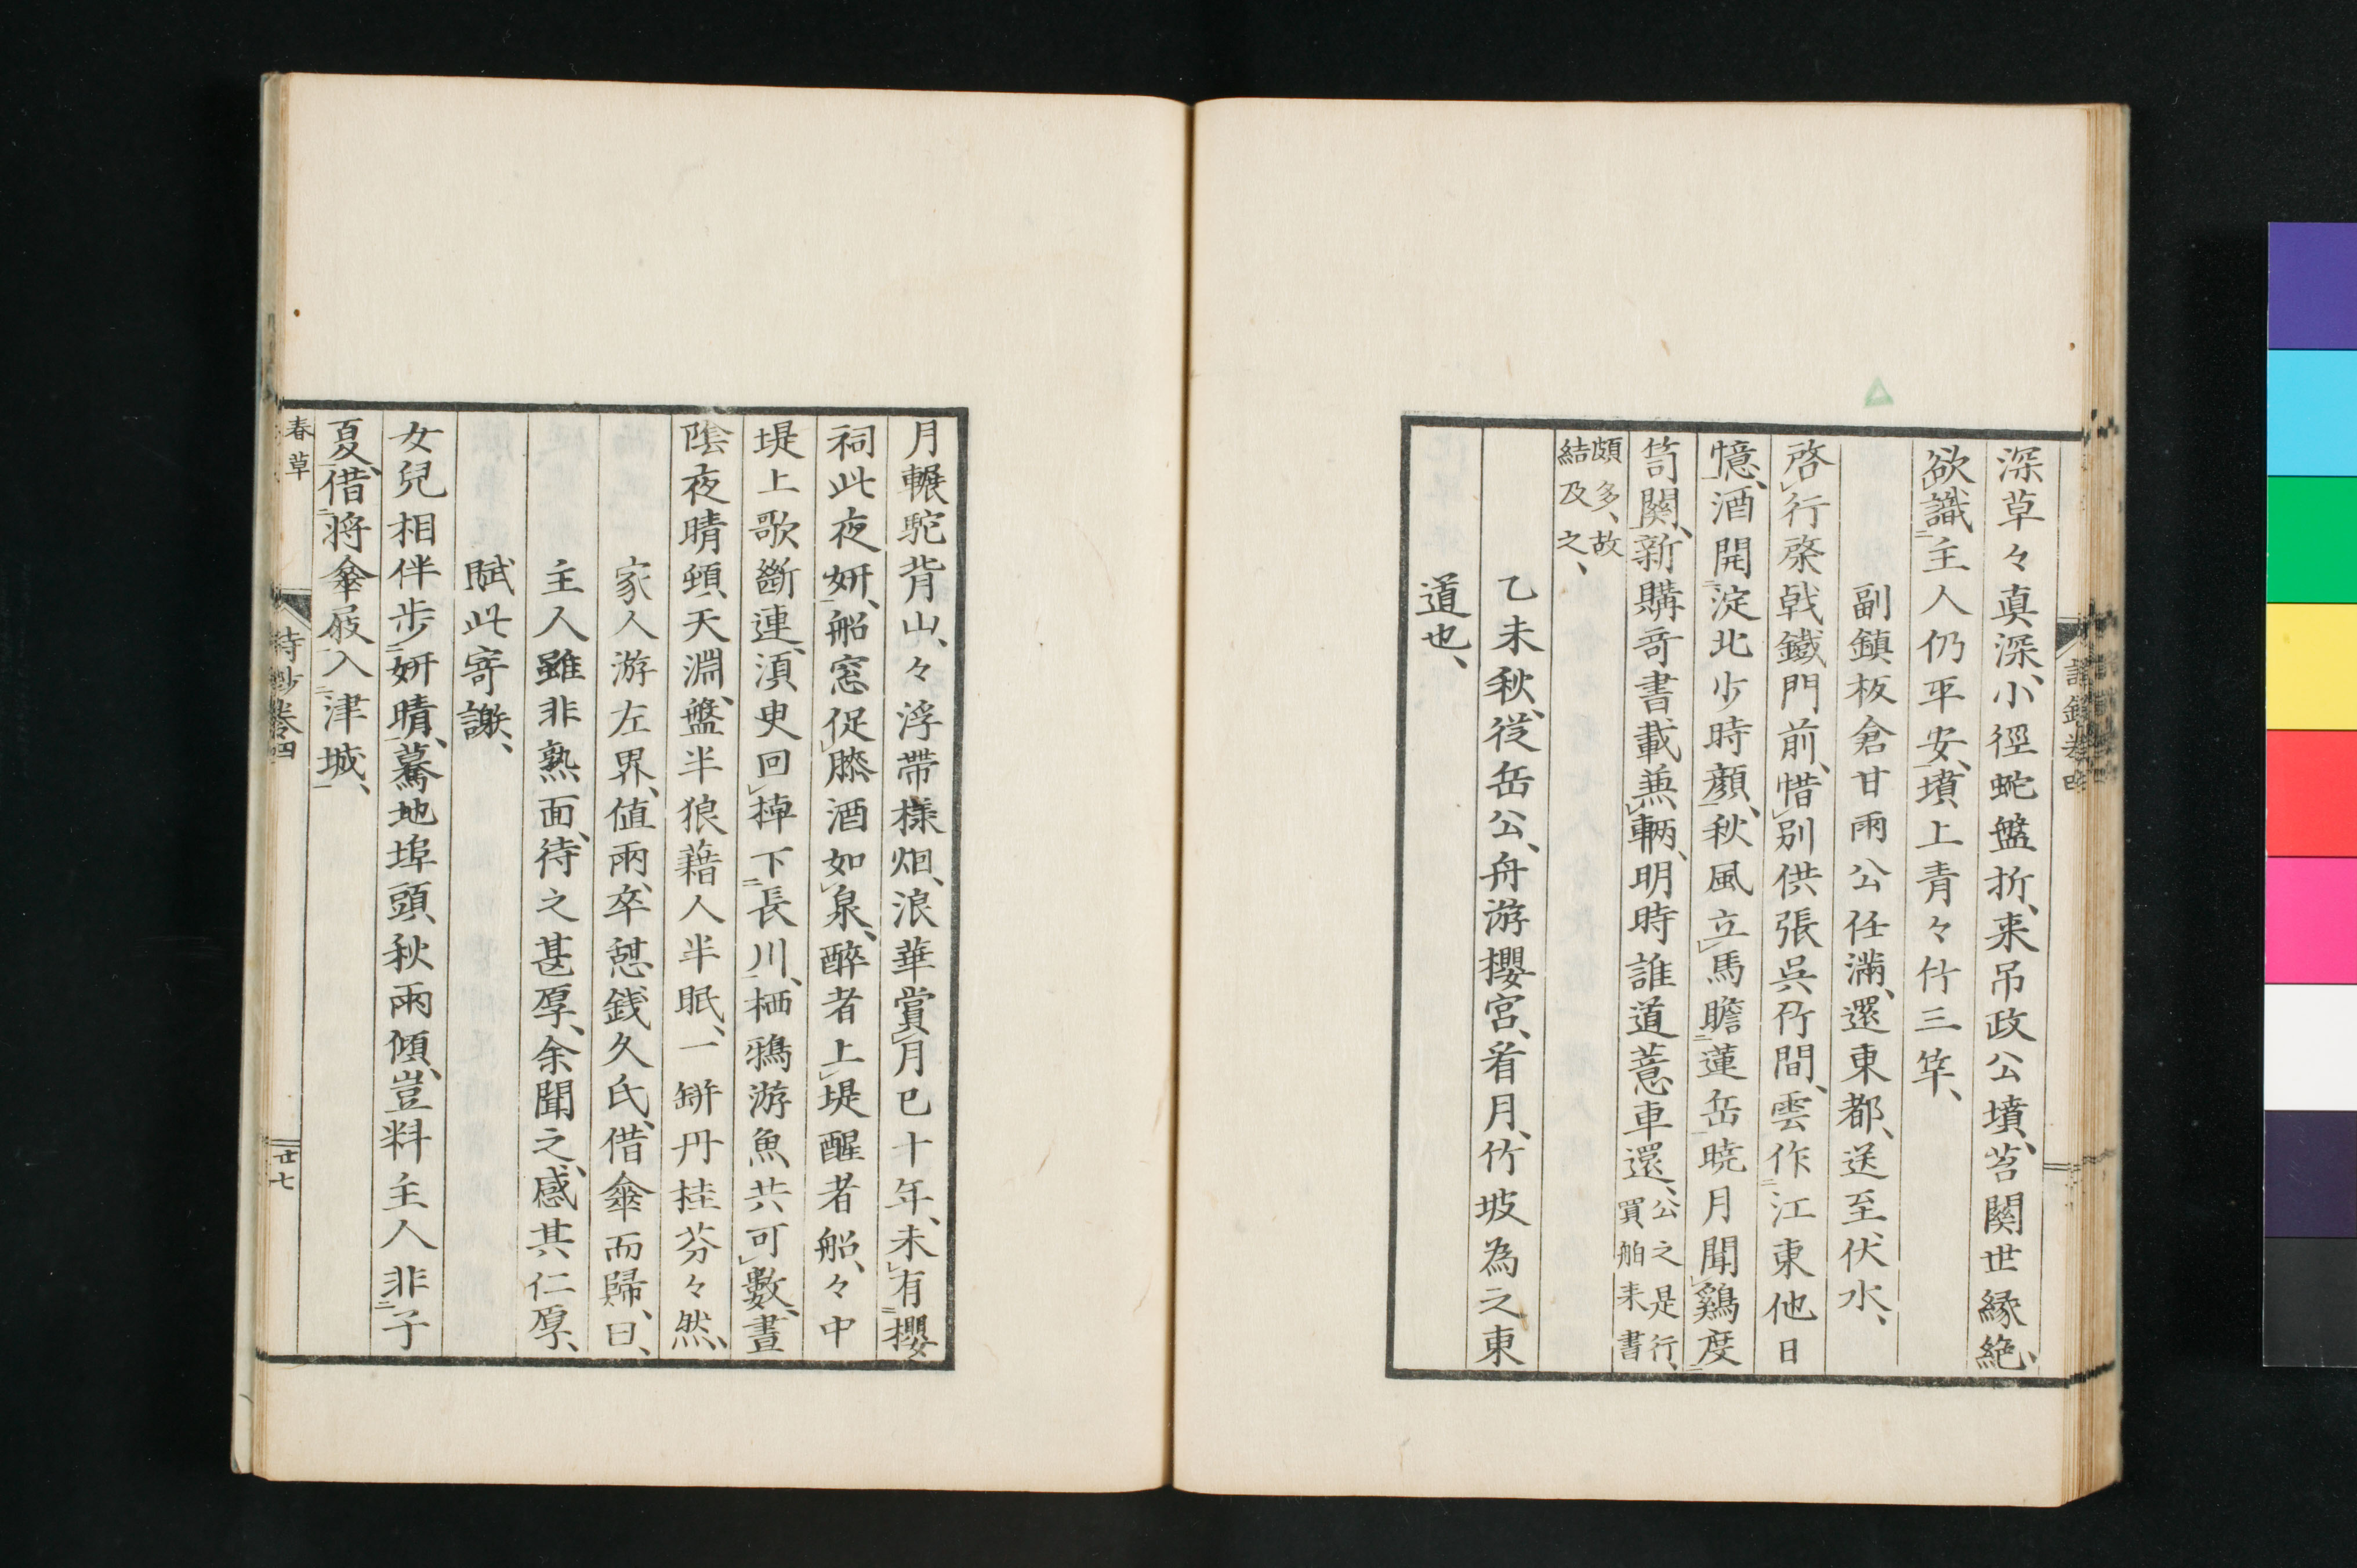 深草々真深、小徑蛇盤折、来吊政公墳、苔関世縁絶、
欲識主人仍平安、墳上青々竹三竿、
副鎮板倉甘雨公任滿、還東都、送至伏水、
啓行棨戟鐵門前、惜別供張呉竹間、雲作江東他日
憶、酒開淀北少時顏、秋風立馬瞻蓮岳、曉月聞鷄度
筥関、新購奇書載兼輛、明時誰道薏車還、公之是行、買舶来書
頗多、故結及之、
乙未秋、從岳公、舟游櫻宮、看月、竹坡為之東
道也、
月輾駝背山、々浮帶様烟、浪華賞月已十年、未有櫻
祠此夜妍、船窓促膝酒如泉、醉者上堤醒者船、々中
堤上歌斷連、須臾回棹下長川、栖鴉游魚共可數、晝
陰夜晴頓天淵、盤半狼藉人半眠、一缾丹桂芬々然、
家人游左界、値雨、卒憩錢久氏、借傘而歸、曰、
主人雖非熟面、待之甚厚、余聞之、感其仁厚、
賦此寄謝、
女兒相伴歩妍晴、驀地埠頭秋雨傾、豈料主人非子
夏、借將傘屐入津城、
春草
詩鈔卷四
廿七